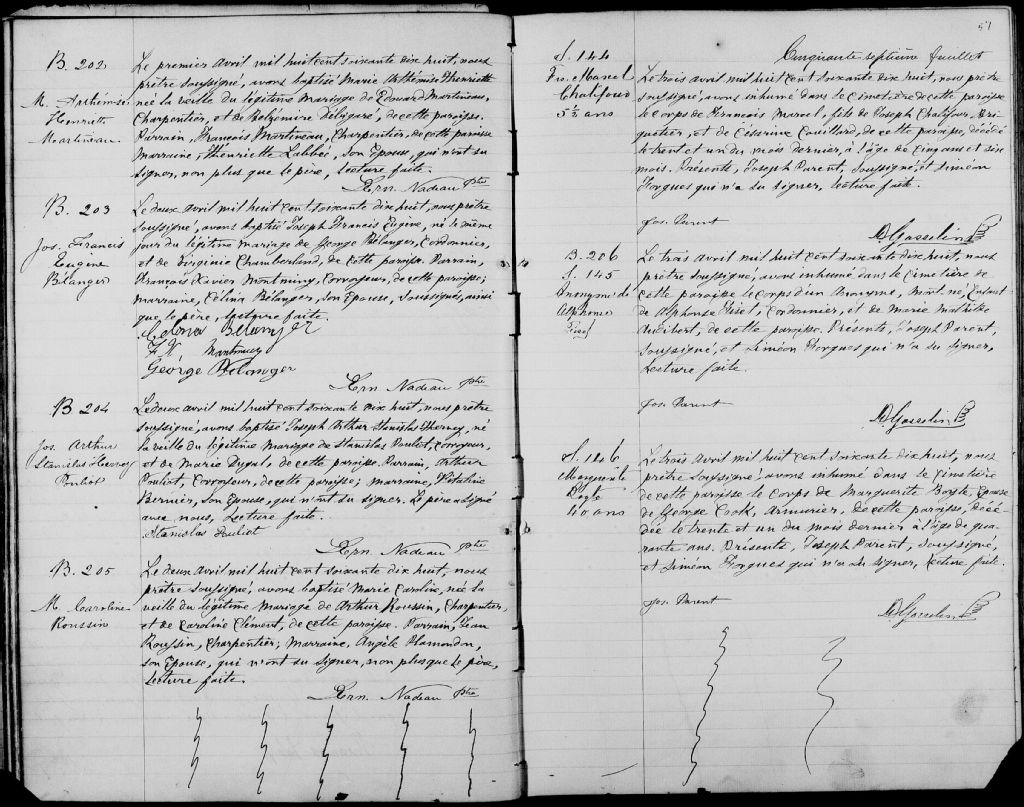 B. 202
M. Arthémise
Henriette
Martineau
Le premier avril mil huit cent soixante dix huit, nous
prêtre soussigné, avons baptisé Marie Arthémise Henriette
née la veille du légitime mariage de Edouard Martineau,
Charpentier, et de Belzemire Deligaré, de cette paroisse.
Parrain, François Martineau, Charpentier, de cette paroisse
Marraine, Henriette Labbée, son Epouse, qui n'ont su
signer, non plus que le père, Lecture faite.
Ern. Nadeau ptre
B. 203
Jos. Francis
Eugène
Bélanger
Le deux avril mil huit cent soixante dix huit, nous prêtre
soussigné, avons baptisé Joseph Francis Eugène, né le même
jour du légitime mariage de George Bélanger, Cordonnier,
et de Virginie Chamberland, de cette paroisse. Parrain,
François Xavier Montminy, Corroyeur, de cette paroisse;
marraine, Célina Bélanger, son Epouse, soussignés, ainsi
que le père, lecture faite.
F. X. Montminy
George Belanger
Ern. Nadeau ptre
B 204
Jos. Arthur
Stanislas Hervey
Pouliot
Le deux avril mil huit cent soixante dix huit, nous prêtre
soussigné, avons baptisé Joseph Arthur Stanislas Hervey, né
la veille du légitime mariage de Stanislas Pouliot, Corroyeur,
et de Marie Dugal, de cette paroisse. Parrain, Arthur
Pouliot, Corroyeur, de cette paroisse; marraine,
Bernier, son Epouse, qui n'ont su signer. Le père a signé
avec nous, Lecture faite.
Stanislas Pouliot
Ern. Nadeau ptre
B. 205
M. Caroline
Roussin
Le deux avril mil huit cent soixante dix huit, nous
prêtre soussigné, avons baptisé Marie Caroline, née la
veille du légitime mariage de Arthur Roussin, Charpentier,
et de Caroline Clément, de cette paroisse. Parrain, Jean
Roussin, Charpentier; Marraine, Angèle Plamondon,
son Epouse, qui n'ont su signer, non plus que le père,
Lecture faite.
Ern. Nadeau ptre
57
Cinquante septième feuillet
S. 144
Frs. Marcel
Chatifour
5½ ans
Le trois avril mil huit cent soixante dix huit, nous prêtre
soussigné, avons inhumé dans le cimetière de cette paroisse
le corps de François Marcel, fils de Joseph Chatifour, Bri-
quetier, et de Césarine Couillard, de cette paroisse, décédé
le trent et un du mois dernier, à l'âge de cinq ans et six
mois. Présents, Joseph Parent, soussigné, et Siméon
Forgues qui n'a su signer, lecture faite.
Jos. Parent
D Gosselin
B. 206
S. 145
Anonyme de
Alphonse
Le trois avril mil huit cent soixante dix huit, nous
prêtre soussigné, avons inhumé dans le cimetière de
cette paroisse le corps d'un Anonyme, mort né, Enfant
de Alphonse, Cordonnier, et de Marie Mathilde
Audibert, de cette paroisse. Présents, Joseph Parent,
soussigné, et Siméon Forgues qui n'a su signer,
Lecture faite.
Jos. Parent
D Gosselin
S. 146
Marguerite
Boyle
40 ans
Le trois avril mil huit cent soixante dix huit, nous
prêtre soussigné avons inhumé dans le Cimetière
de cette paroisse le corps de Marguerite Boyle, Epouse
de George Cook, Armurier, de cette paroisse, décé-
dée le trente et un du mois dernier à l'âge de qua-
rante ans. Présents, Joseph Parent, soussigné,
et Siméon Forgues qui n'a su signer, lecture faite.
Jos. Parent
D Gosselin